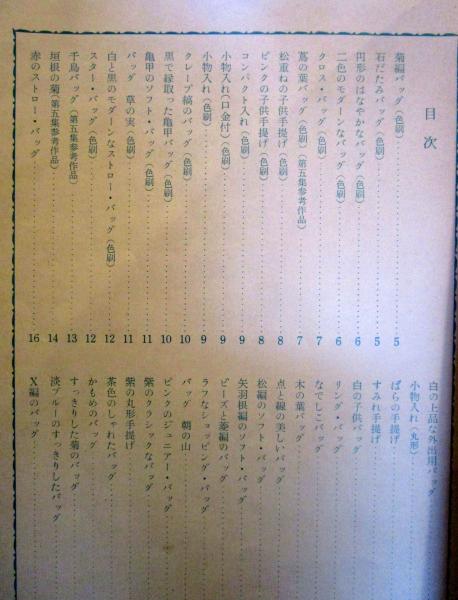 目次
菊編バッグ（色刷）……5
石だたみバッグ（色刷）……5
円形のはなやかなバッグ（色刷）……6
二色のモダーンなバッグ（色刷）……6
クロス・バッグ（色刷）……7
蔦の葉バッグ（色刷）（第五集参考作品）……7
松重ねの子供手提げ（色刷）……8
ピンクの子供手提げ（色刷）……8
コンパクト入れ（色刷）……9
小物入れ（口金付）（色刷）……9
小物入れ（色刷）……9
クレープ縞のバッグ（色刷）……10
黒で縁取った亀甲バッグ（色刷）……10
亀甲のソフト・バッグ（色刷）……11
バッグ 草の実（色刷）……11
白と黒のモダーンなストロー・バッグ（色刷）……12
スター・バッグ（色刷）……12
千鳥バッグ（第五集参考作品）……13
垣根の菊（第五集参考作品）……14
赤のストロー・バッグ……16
白の上品な外出用バッグ
小物入れ（丸形）
ばらの手提げ
すみれ手提げ
白の子供バッグ
リング・バッグ
なでしこバッグ
木の葉バッグ
点と線の美しいバッグ
松編のソフト・バッグ
矢羽根編のソフト・バッグ
ビーズと菱編のバッグ
ラフなショッピング・バッグ
バッグ 朝の山
ピンクのジュニアー・バッグ
紫のクラシックなバッグ
紫の丸形手提げ
茶色のしゃれたバッグ
かもめのバッグ
すっきりした菊のバッグ
淡ブルーのすっきりしたバッグ
X編のバッグ